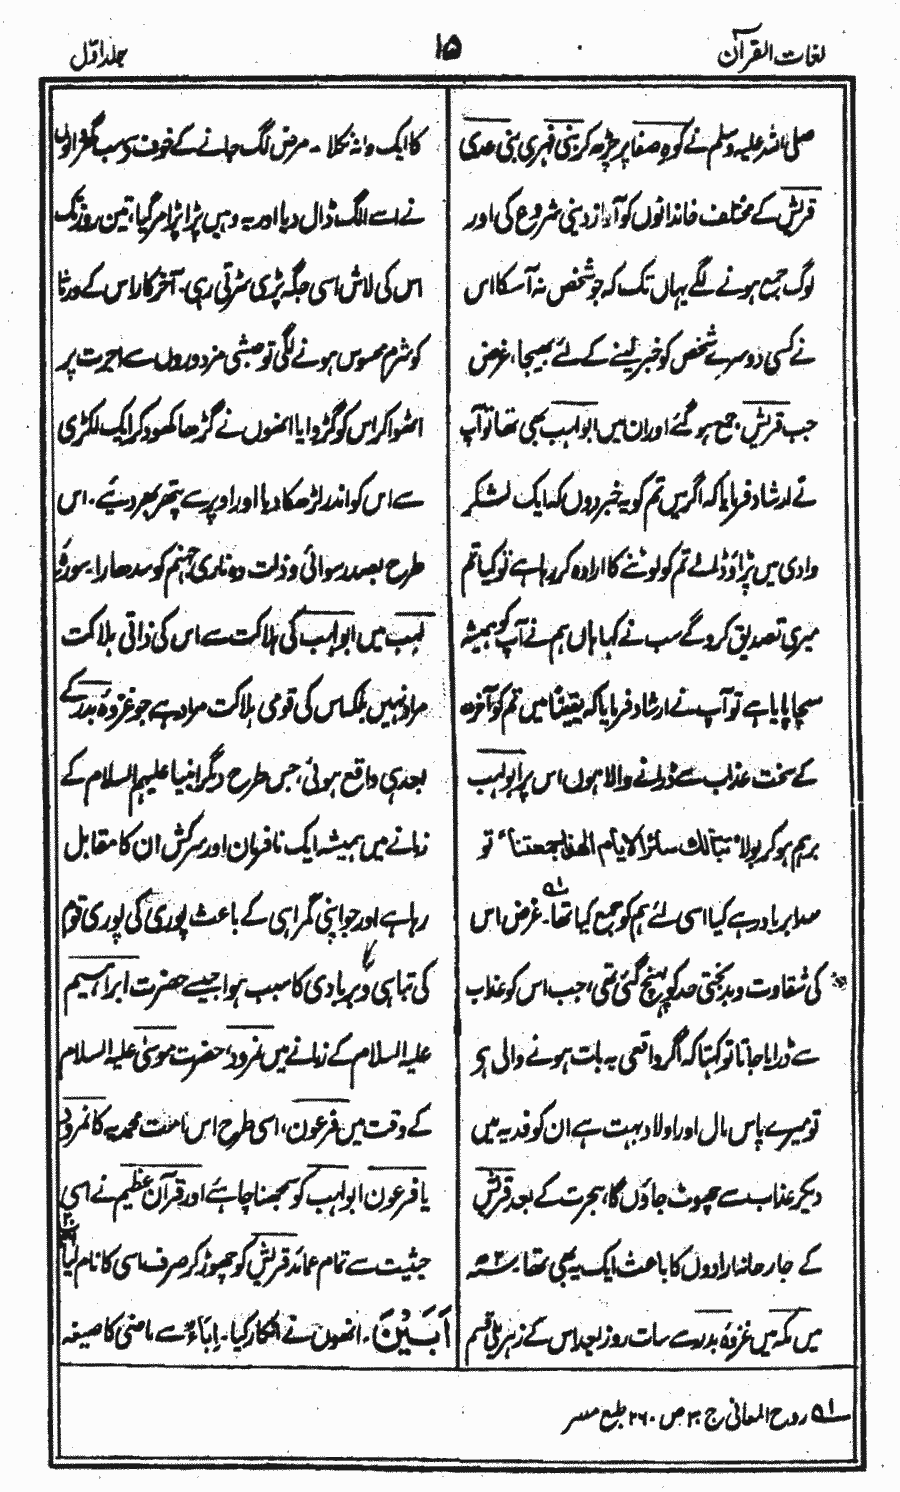 لغات القرآن
۱۵
جلد اوّل
صلی اللہ علیہ وسلم نے کوہِ صفا پر چڑھ کر بنی فہری بنی عدی
قریش کے مختلف خاندانوں کو آواز دینی شروع کی اور
لوگ جمع ہونے لگے یہاں تک کہ جو شخص نہ آسکا اس
نے کسی دوسرے شخص کو خبر لینے کے لئے بھیجا، غرض
جب قریش جمع ہو گئے اور ان میں ابولہب بھی تھا تو آپ
نے ارشاد فرمایا کہ اگر میں تم کو یہ خبر دوں کہ ایک لشکر
وادی میں پڑاؤ ڈالے تم کو لوٹنے کا ارادہ کر رہا ہے تو کیا تم
میری تصدیق کرو گے سب نے کہا ہاں ہم نے آپ کو ہمیشہ
سچا پایا ہے تو آپ نے ارشاد فرمایا کہ یقیناً میں تم کو آخرت
کے سخت عذاب سے ڈرانے والا ہوں، اس پر ابولہب
برہم ہو کر بولا "تبّاً لک سائر الایام الھذا جمعتنا" تو
سدا برباد رہے کیا اسی لئے ہم کو جمع کیا تھا۔ غرض اس ؎۱
کی شقاوت و بدبختی حد کو پہنچ گئی تھی، جب اس کو عذاب
سے ڈرایا جاتا تو کہتا کہ اگر واقعی یہ بات ہونے والی ہی
تو میرے پاس مال اور اولاد بہت ہے ان کو فدیہ میں
دیکر عذاب سے چھوٹ جاؤں گا، ہجرت کے بعد قریش
کے جار حانہ ارادوں کا باعث ایک یہ بھی تھا
میں مکہ میں غزوۂ بدر سے سات روز بعد اس کے زہریلی قسم
کا ایک دانہ نکلا ۔ مرض لگ جانے کے خوف سے سب گھر والوں
نے اسے الگ ڈال دیا اور یہ وہیں پڑا پڑا مر گیا، تین روز تک
اس کی لاش اسی جگہ پڑی سڑتی رہی۔ آخر کار اس کے ورثا
کو شرم محسوس ہونے لگی تو حبشی مزدوروں سے اجرت پر
اٹھوا کر اس کو گڑوایا انھوں نے گڑھا کھود کر ایک لکڑی
سے اس کو اندر لڑھکا دیا اور اوپر سے پتھر بھر دیئے۔ اس
طرح بصد رسوائی و ذلت وہ ناری جہنم کو سدھارا۔ سورۂ
لہب میں ابولہب کی ہلاکت سے اس کی ذاتی ہلاکت
مراد نہیں بلکہ اس کی قومی ہلاکت مراد ہے جو غزوۂ بدر کے
بعد ہی واقع ہوئی، جس طرح دیگر انبیا علیہم السلام کے
زمانے میں ہمیشہ ایک نافرمان اور سرکش ان کا مقابل
رہا ہے اور جو اپنی گمراہی کے باعث پوری کی پوری قوم
کی تباہی و بربادی کا سبب ہوا جیسے حضرت ابراہیم
علیہ السلام کے زمانے میں نمرود، حضرت موسیٰ علیہ السلام
کے وقت میں فرعون، اسی طرح اس امت محمدیہ کا نمرود
یا فرعون ابولہب کو سمجھنا چاہئے اور قرآن عظیم نے اسی
حیثیت سے تمام عمائد قریش کو چھوڑ کر صرف اسی کا نام لیا
اَبَیْنَ ۔ انھوں نے انکار کیا۔ اِبَاءٌ سے ماضی کا صیغہ
؎۱ روح المعانی ج ۳۰ ص ۲۶۰ طبع مصر